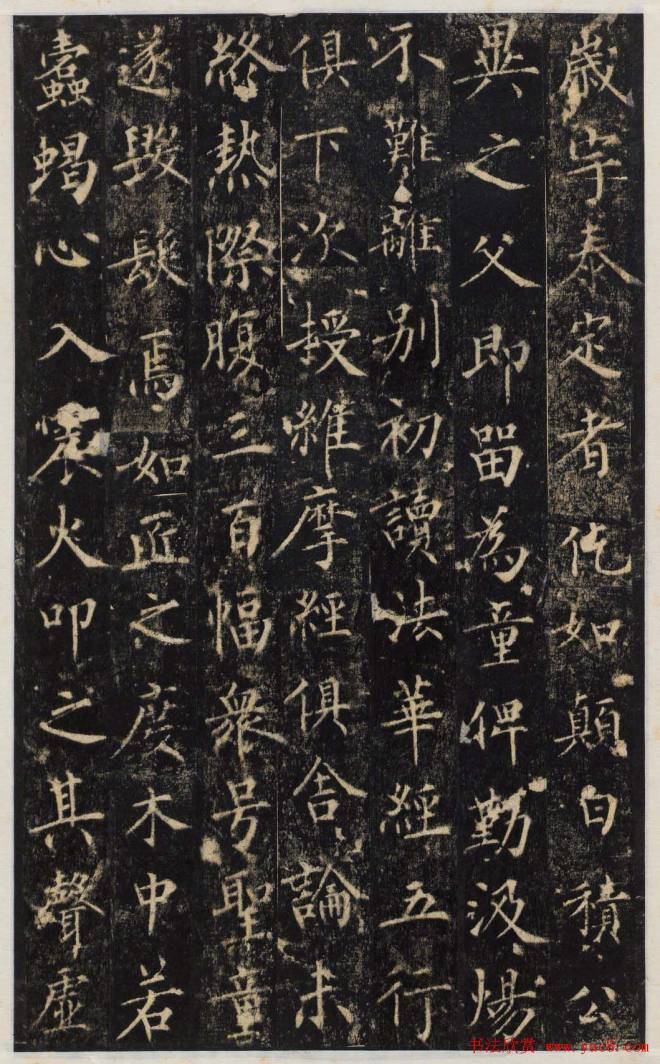 歲宇泰定者仡如顛白積公
異之父即畱為童俾勤汲煬
不難離別初讀法華經五行
俱下次授維摩經俱舍論未
終熱際腹三百幅衆号聖童
遂毀髮焉如匠之度木中若
蠹蝎心入震火叩之其聲虛
书法欣赏 www.yac8.com